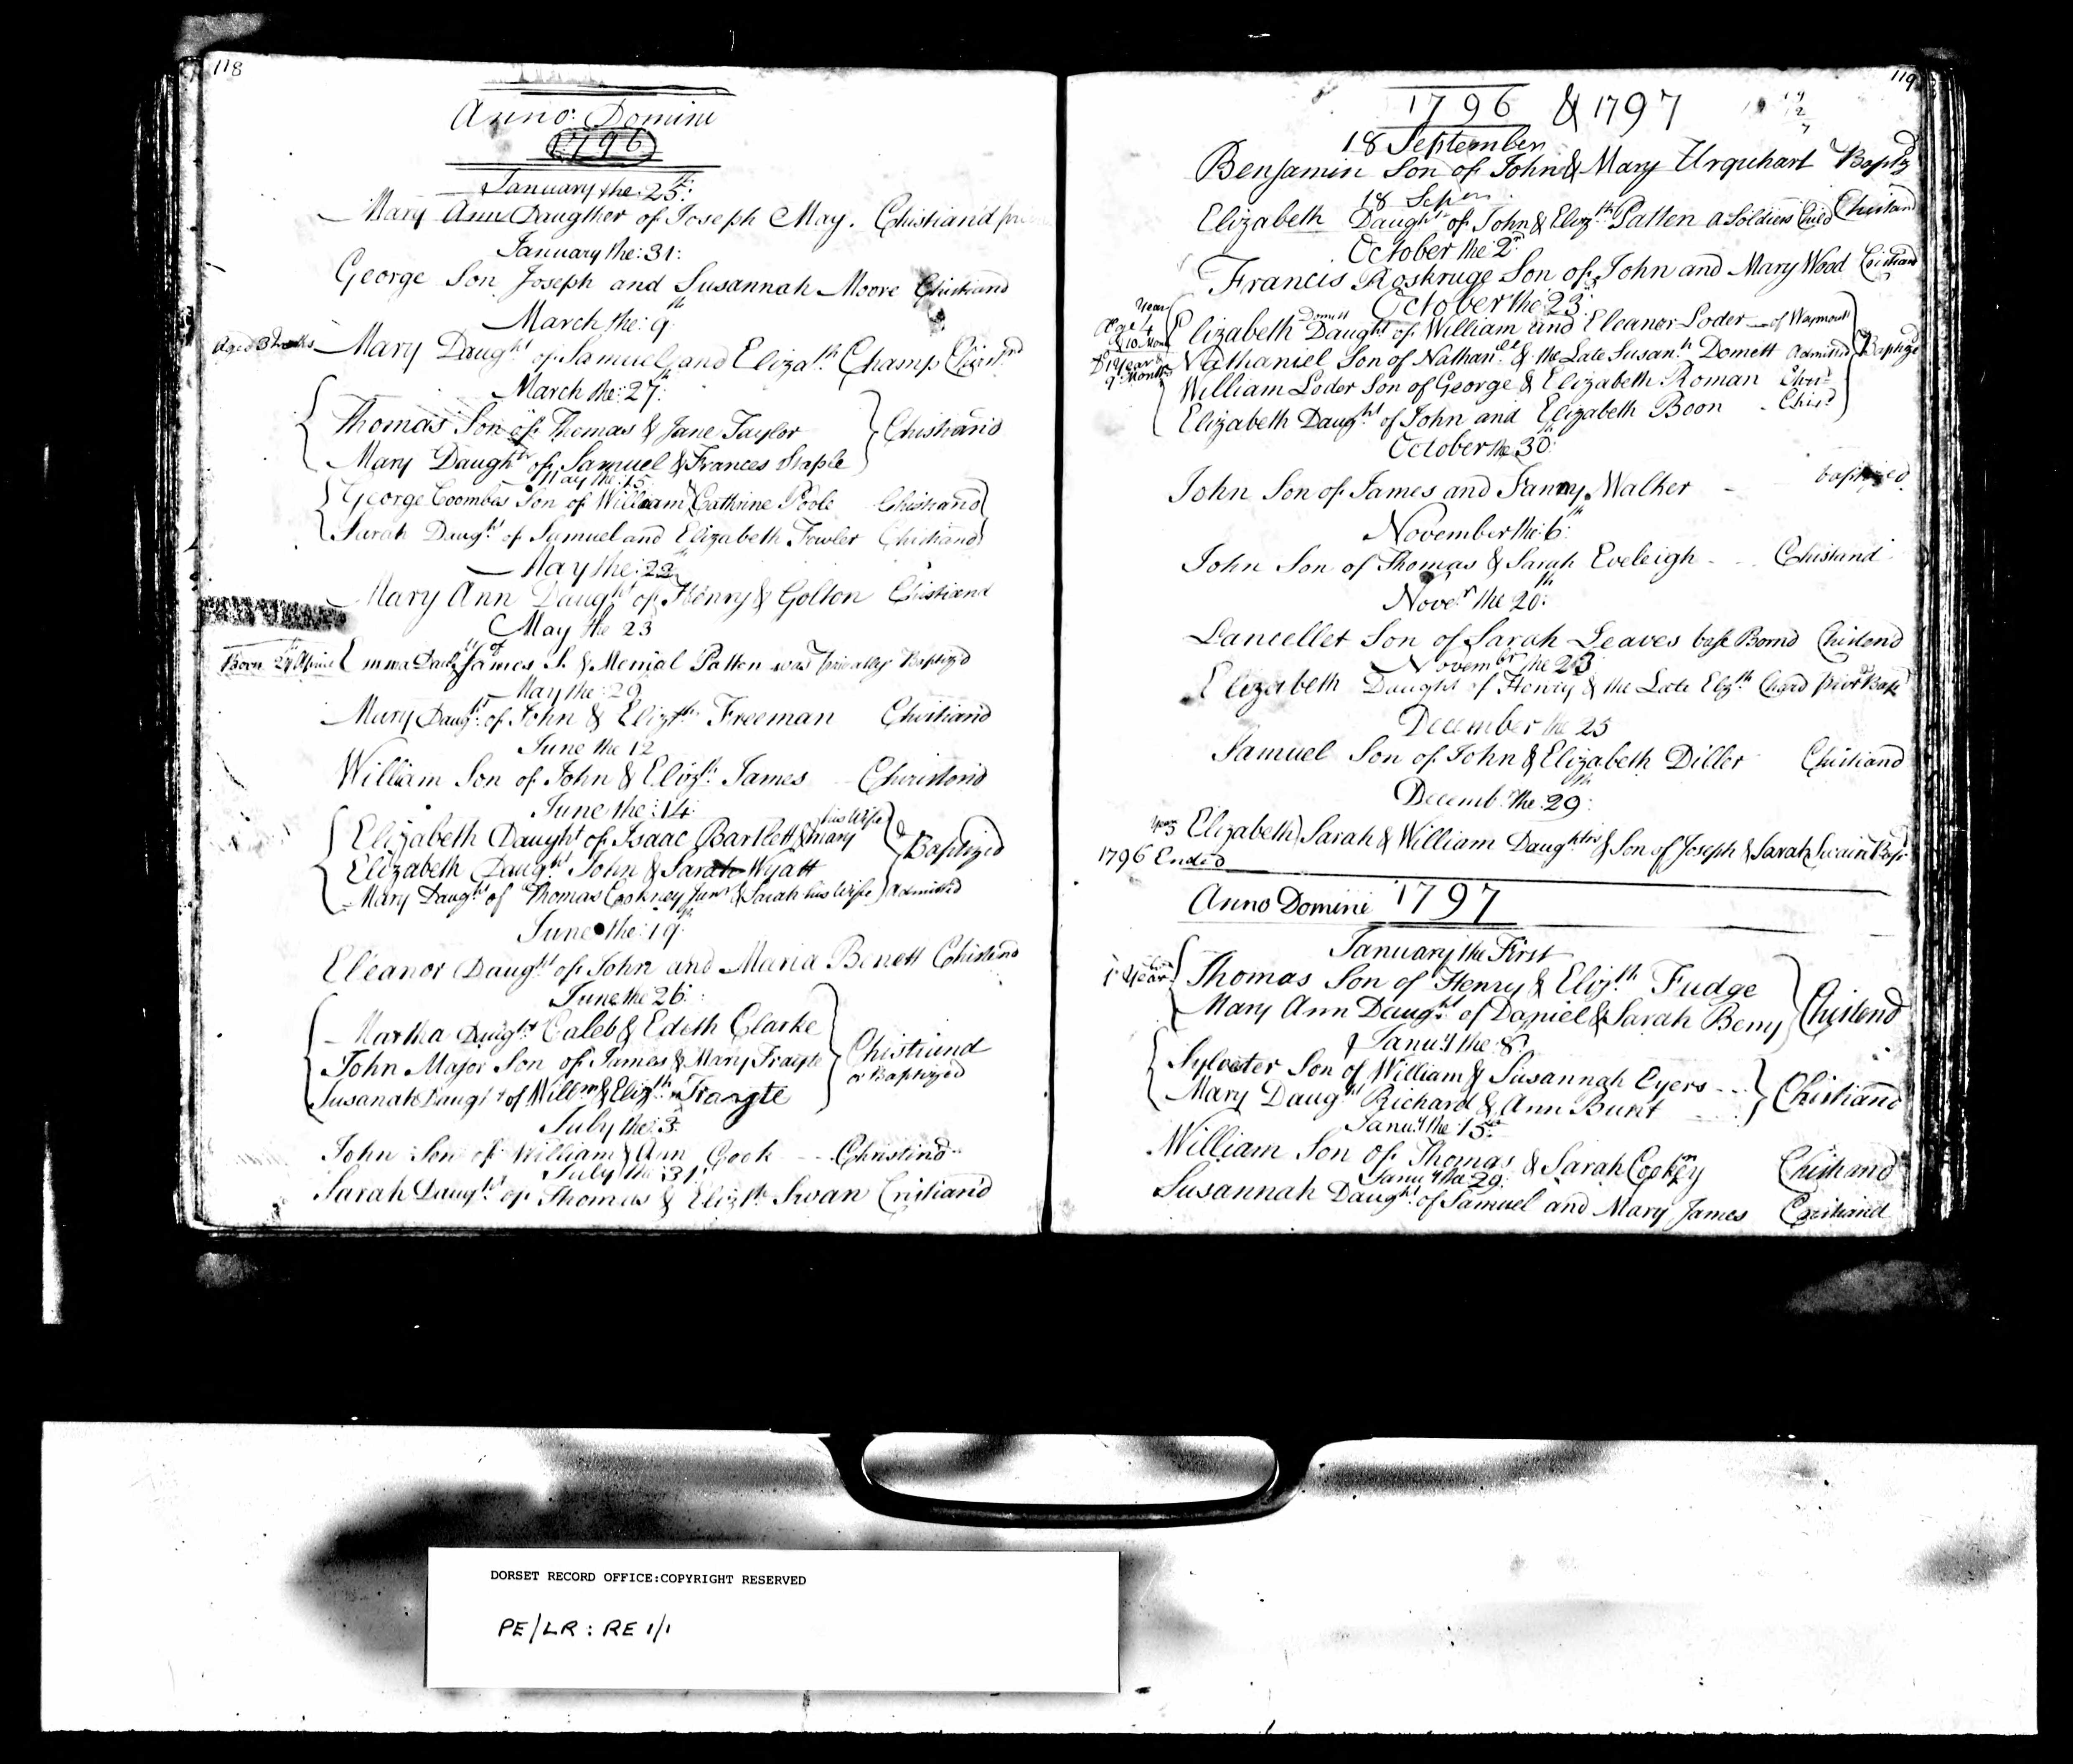 118
Anno: Domini
1796
January the: 25th:
Mary Ann Daugther of Joseph May. Christian'd
January the: 31:
George Son Joseph and Susannah Moore Christiand
March the: 9th
Aged 3 Mary Daught of Samuel and Elizath Champ
March the: 27th:
Thomas Son of Thomas & Jane Taylor
Christiand
Mary Daughtr of Samuel & Frances Staple
May the: 15
George Coombes Son of William & Cathrine Poole Christiand
Sarah Daught of Samuel and Elizabeth Fowler Christiand
May the: 22
Mary Ann Daught of Henry & Golton Christiand
May the 23
Born 24 Emma Daut of James S. & Menial Patten was privately Baptized
May the: 29
Mary Daught of John & Elizth Freeman Christiand
June the 12
William Son of John & Elizth James
June the: 14:
Elizabeth Daught of Isaac Bartlett & Mary his Wife
Baptized
Elizabeth Daught John & Sarah Wyatt
Mary Daught of Thomas Cookney Junr & Sarah his Wife admitted
June the: 19th
Eleanor Daught of John and Maria Benett
June the 26:
Martha Daught Caleb & Edith Clarke
John Major Son of James & Mary
Christiand
or Baptized
Susanah Daught of Willm & Elizth
July the: 3d
John Son of William & Ann Cook
July the: 31:
Sarah Daught of Thomas & Elizth Swan Cristiand
119
1796 & 1797
18 September
Benjamin Son of John & Mary Urquhart Baptz
18 Sepm
Elizabeth Daught of John & Elizth Patten a Soldiers Child
October the 2d
Francis Roskruge Son of John and Mary Wood
October the 23:
Year
Age 4
& 10 Mon
Elizabeth Domett Daught of William and Eleanor Loder of Waymouth
Nathaniel Son of Nathanll & the Late Susanh Domett Admitted
Baptize
Do 1 Year &
9 Months
William Loder Son of George & Elizabeth Roman
Elizabeth Daught of John and Elizabeth Boon
October the 30th:
John Son of James and Fanny Walker baptized
November the: 6th:
John Son of Thomas & Sarah Eveleigh Chistand
Nover the 20th:
Lanceller Son of Sarah Leaves base Bornd Chistend
Novembr the 23
Elizabeth Daught of Henry & the Late Elizth Chard
December the 25
Samuel Son of John & Elizabeth Diller Christiand
Decemb: the: 29th:
Elizabeth Sarah & William Daughtrs & Son of Joseph & Sarah Swain
1796 Ended
Anno Domini 1797
January the First
1 Year
Thomas Son of Henry & Elizth Fudge
Chistend
Mary Ann Daught of Daniel & Sarah Beny
Januy the 8th
Sylvester Son of William & Susannah Eyers
Mary Daught Richard & Ann Bunt
Christiand
Januy the: 15th
William Son of Thomas & Sarah Cookny
Januy the 29:
Susannah Daught of Samuel and Mary James
DORSET RECORD OFFICE:COPYRIGHT RESERVED
PE/LR : RE 1/1